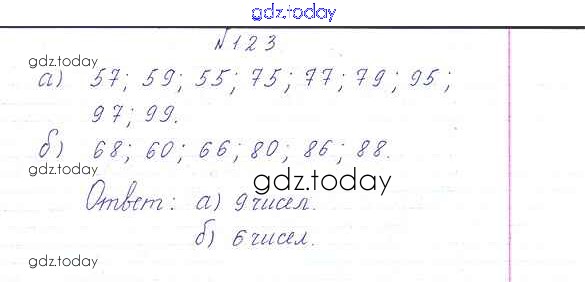 gdz.today
№ 123
gdz.today
а) 57; 59; 55; 75; 77; 79; 95;
97; 99.
б) 68; 60; 66; 80; 86; 88.
gdz.today
gdz.today
Ответ: а) 9 чисел.
б) 6 чисел.
gdz.today